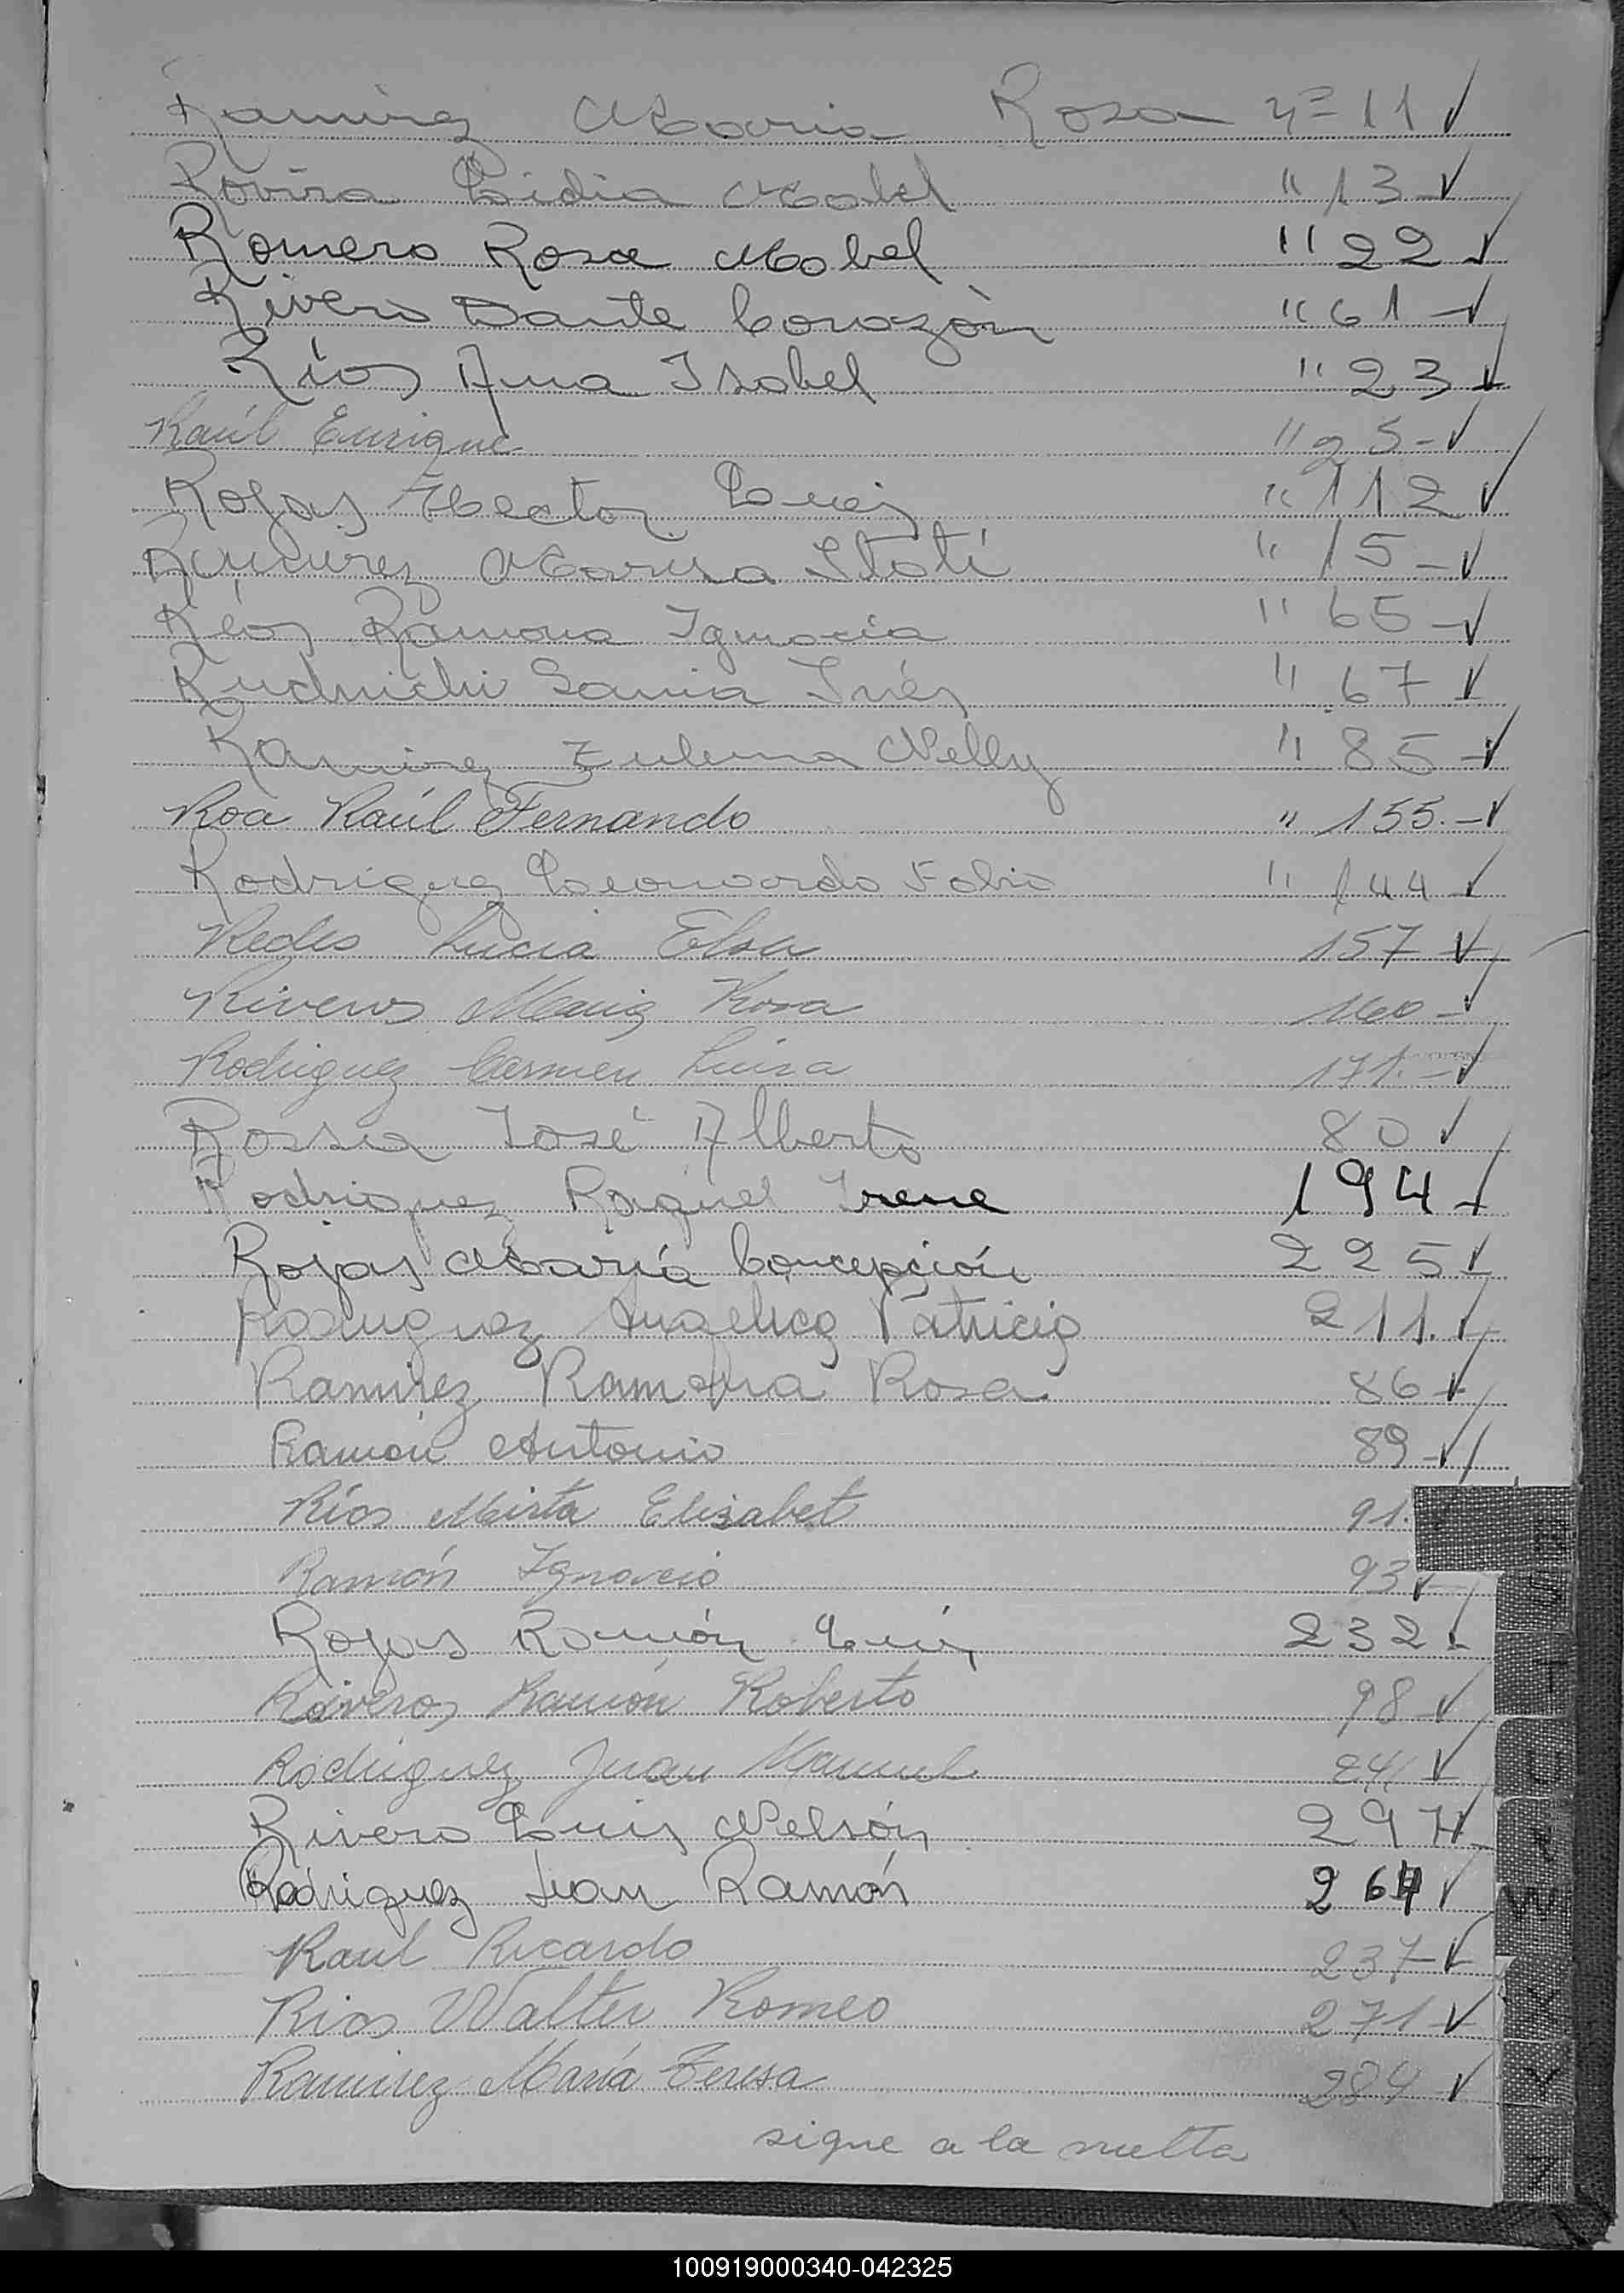 Ramirez Maria Rosa nº 11 ✓
Rovira Lidia Mabel " 13 ✓
Romero Rosa Mabel " 22 ✓
Rivero Dante Corazón " 61 ✓
Ríos Ana Isabel " 23 ✓
Raúl Enrique " 25 ✓
Rojas Hector Luis " 112 ✓
Ramirez Marisa Itatí " 15 ✓
Ríos Ramona Ignacia " 65 ✓
Rudnichi Sania Inés " 67 ✓
Ramirez Zulema Nelly " 85 ✓
Roa Raúl Fernando " 155 ✓
Rodriguez Leonardo Fabio " 144 ✓
Lucia Elsa 157 ✓
Riveros Maria Rosa 160 ✓
Rodriguez Carmen Luisa 171 ✓
José Alberto 80 ✓
Rodriguez Raquel Irene 194 ✓
Rojas María Concepción 225 ✓
Rodriguez Angelica Patricia 211. ✓
Ramirez Ramona Rosa 86 ✓
Ramón Antonio 89 ✓
Ríos Mirta Elizabet 91.
Ramón Ignacio 93 ✓
Rojas Ramón Luis 232 ✓
Riveros Ramón Roberto 98 ✓
Rodriguez Juan Manuel 241 ✓
Rivero Luis Nelsón 297 ✓
Rodriguez Juan Ramón 264 ✓
Raul Ricardo 237 ✓
Rios Walter Romeo 271 ✓
Ramirez María Teresa 284 ✓
sigue a la vuelta
100919000340-042325